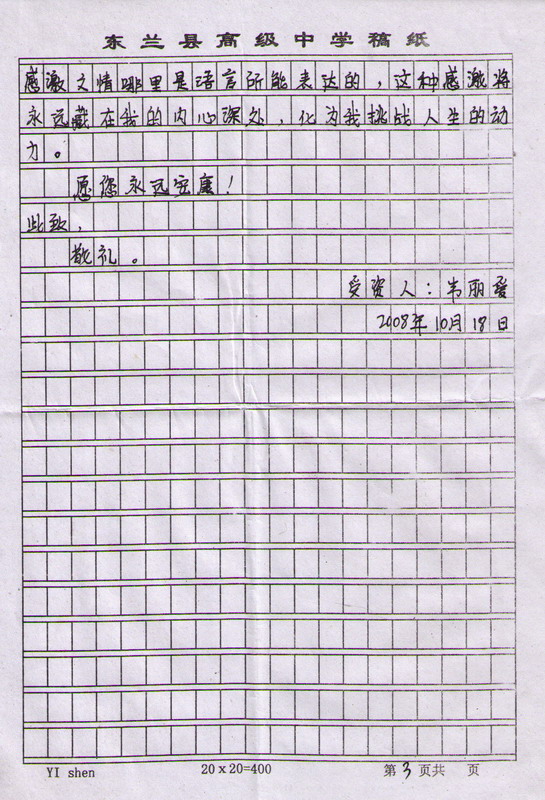 东兰县高级中学稿纸
感激之情哪里是语言所能表达的，这种感激将
永远藏在我的内心深处，化为我挑战人生的动
力。
愿您永远安康！
此致，
敬礼。
受资人：韦丽爱
2008年10月18日
YI shen
20x20=400
第3页共 页